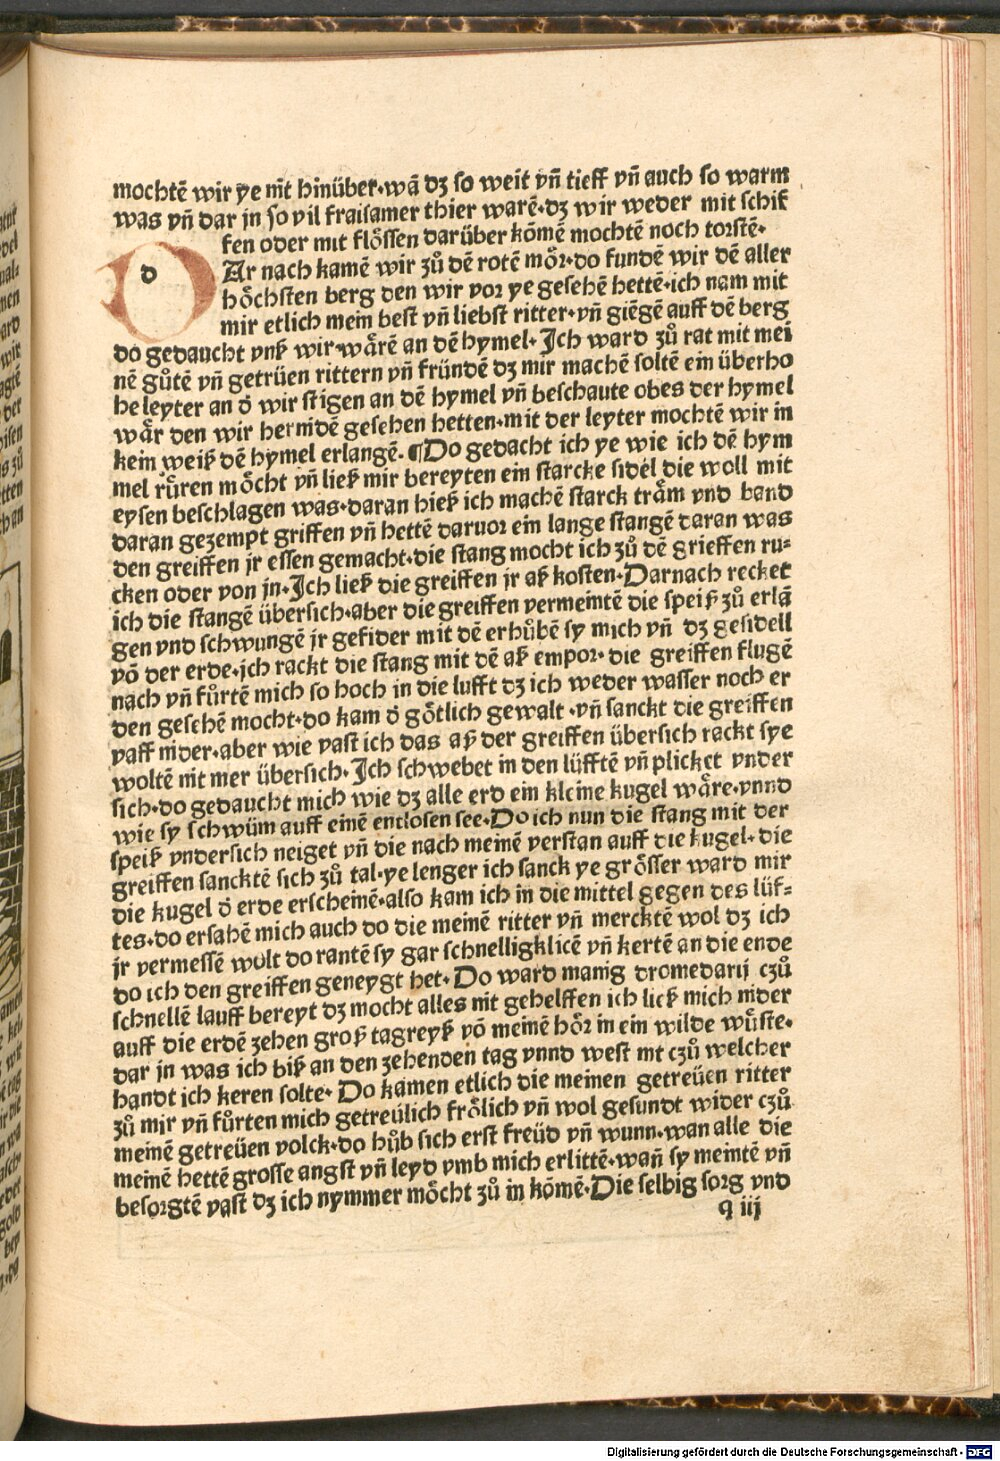 mochtē wir ye nit hinüber·wā dz so weit vñ tieff vñ auch so warm
was vñ dar jn so vil fraisamer thier warē·dz wir weder mit schif
fen oder mit flössen darüber kōmē mochtē noch torstē·
d
DAr nach kamē wir zů dē rotē mör·do fundē wir dē aller
höchsten berg den wir vor ye gesehē hettē·ich nam mit
mir etlich mein best vñ liebst ritter·vñ giēgē auff dē berg
do gedaucht vnß wir wärē an dē hymel· Ich ward zů rat mit mei
nē gůtē vñ getrüen rittern vñ fründē dz mir machē soltē ein überho
he leyter an ď wir stigen an dē hymel vñ beschaute obes der hymel
wär den wir hernidē gesehen hetten·mit der leyter mochtē wir in
kein weiß dē hymel erlangē· ¶Do gedacht ich ye wie ich dē hym
mel růren möcht vñ ließ mir bereyten ein starcke sidel die woll mit
eysen beschlagen was·daran hieß ich machē starck träm vnd band
daran gezempt griffen vñ hettē daruor ein lange stangē daran was
den greiffen jr essen gemacht·die stang mocht ich zů dē grieffen ru⸗
cken oder von jn·Ich ließ die greiffen jr aß kosten·Darnach recket
ich die stangē übersich·aber die greiffen vermeintē die speiß zů erlā
gen vnd schwungē jr gefider mit dē erhůbē sy mich vñ dz gesidell
vō der erde·ich rackt die stang mit dē aß empor· die greiffen flugē
nach vñ fůrtē mich so hoch in die lufft dz ich weder wasser noch er
den gesehē mocht·do kam ď götlich gewalt ·vñ sanckt die greiffen
vast nider·aber wie vast ich das aß der greiffen übersich rackt sye
woltē nit mer übersich·Ich schwebet in den lüfftē vñ plicket vnder
sich·do gedaucht mich wie dz alle erd ein kleine kugel wäre·vnnd
wie sy schwüm auff einē entlosen see·Do ich nun die stang mit der
speiß vndersich neiget vñ die nach meinē verstan auff die kugel·die
greiffen sancktē sich zů tal·ye lenger ich sanck ye grösser ward mir
die kugel ď erde erscheinē·also kam ich in die mittel gegen des lüf⸗
tes·do ersahē mich auch do die meinē ritter vñ mercktē wol dz ich
jr vermessē wolt do rantē sy gar schnelligklicē vñ kertē an die ende
do ich den greiffen geneygt het· Do ward manig dromedarij czů
schnellē lauff bereyt dz mocht alles nit gehelffen ich ließ mich nider
auff die erdē zehen groß tagreyß vō meinē hör in ein wilde wůste·
dar jn was ich biß an den zehenden tag vnnd west nit czů welcher
handt ich keren solte· Do kamen etlich die meinen getreüen ritter
zů mir vñ fůrten mich getreülich frölich vñ wol gesundt wider czů
meinē getreüen volck·do hůb sich erst freüd vñ wunn·wan alle die
meinē hettē grosse angst vñ leyd vmb mich erlittē·wañ sy meintē vñ
besorgtē vast dz ich nymmer möcht zů in kōmē·Die selbig sorg vnd
q iij
Digitalisierung gefördert durch die Deutsche Forschungsgemeinschaft - DFG